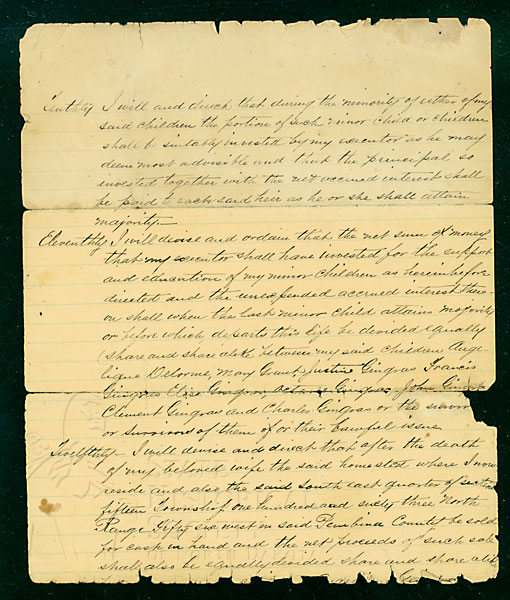 Tenthly I will and direct that during the minority of either of my
said children the portion of such minor child or children
shall be suitably invested by my executor as he may
deem most advisible and that the principal so
invested together with the net accrued interest shall
be paid to each said heir as he or she shall attain
majority.
Eleventhly I will devise and ordain that the net sum of money
that my executor shall have invested for the support
and education of my minor children as hereinbefore
directed and the unexpended accrued interest there-
on shall when the last minor child attains majority
or before which, departs this life be divided equally
share and share alike between my said children Ange-
lique Delorme, Mary Grant Justine Gingras Francis
Gingras Elise Gingras Gingras John
Clement Gingras and Charles Gingras or the
or survivors of them or their lawful issue
Twelfthly I will devise and direct that after the death
of my beloved wife the said homested where I now
reside and also the said South east quarter of
fifteen Township one Hundred and sixty three North
Range Fifty six west in said Pembina be sold
for cash in hand and the net proceeds of such sale
shall also be equally devided share and share